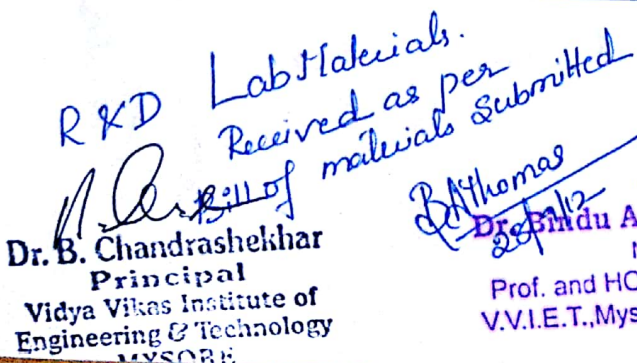 R & D Lab Materials.
Received as per
Bill of materials Submitted
Dr. B. Chandrashekhar
Principal
Vidya Vikas Institute of
Engineering & Technology
MYSORE
BAThomas
Dr. Bindu A
Prof. and HO
V.V.I.E.T.,Mys